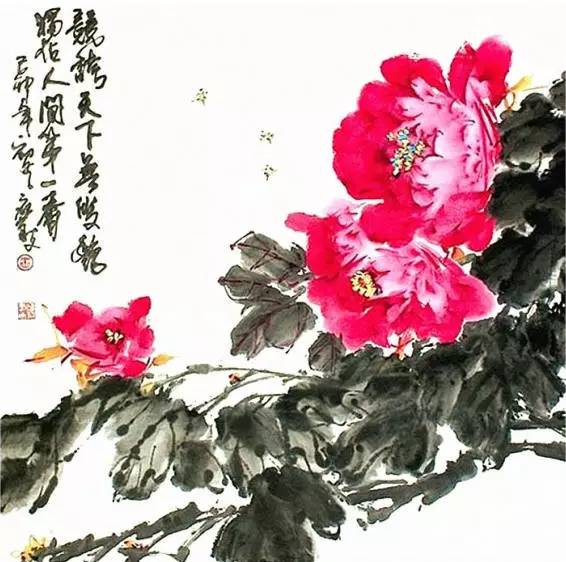 競誇天下無雙艷
獨佔人間第一香
己卯年